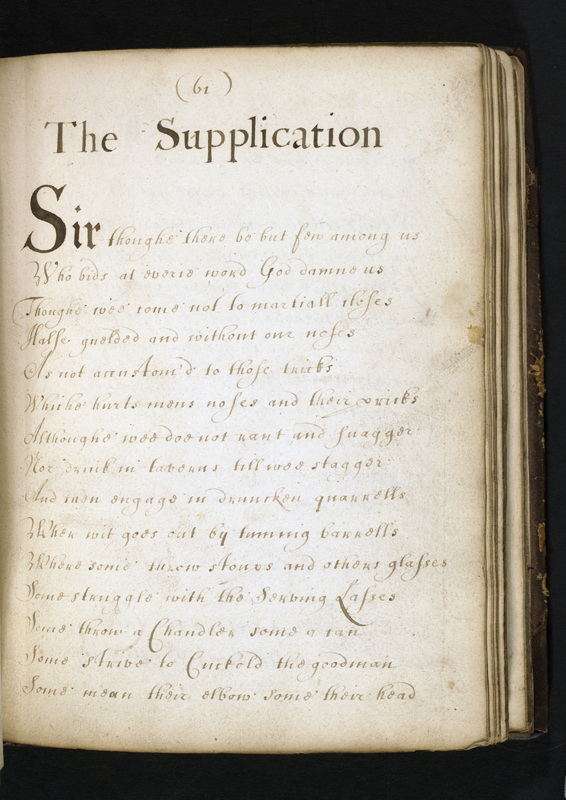 (61)
The Supplication
Sir thoughe there be but few among us
Who bids at everie word God damne us
Thoughe wee come not to martiall closes
Halfe guelded and without our noses
As not accustom'd to those tricks
Whiche hurts mens noses and their pricks
Althoughe wee doe not rant and suagger
Nor drink in taverns till wee stagger
And then engage in druncken quarrells
When wit goes out by tuming barrells
Where some throw stoups and others glasses
Some struggle with the Serving Lasses
Some throw a Chandler some a can
Some strive to Cuckold the goodman
Some mean their elbow some their head